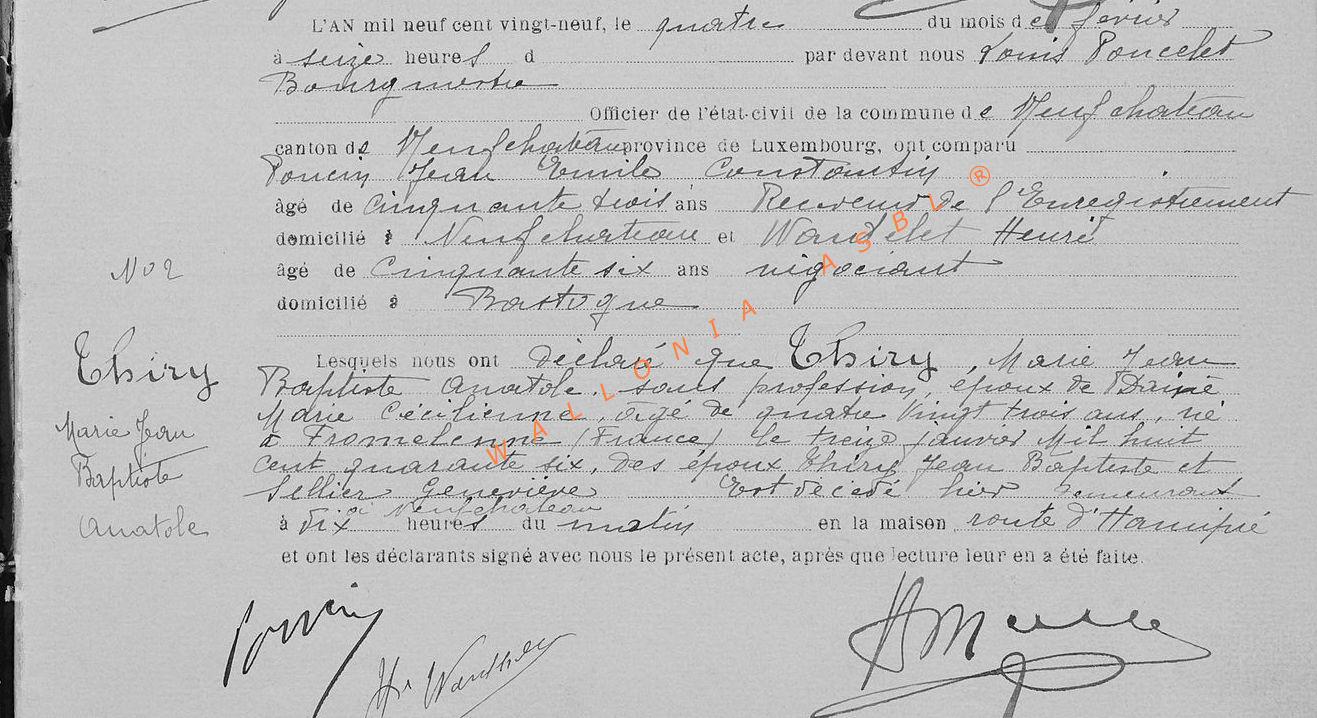 L'AN mil neuf cent vingt-neuf, le quatre du mois de février
à seize heures d par devant nous Louis Poncelet
Bourgmestre
Officier de l'état-civil de la commune de Neufchateau
canton de Neufchateau province de Luxembourg, ont comparu
Poncin Jean Emile Constantin
âgé de Cinquante trois ans Receveur de l'Enregistrement
domicilié à Neufchateau et Henri
No 2
âgé de Cinquante six ans négociant
domicilié à Bastogne
Thiry
Marie Jean
Baptiste
Anatole
Lesquels nous ont déclaré que Thiry, Marie Jean
Baptiste Anatole, sans profession, époux de
Marie Cécilienne, âgé de quatre vingt trois ans, né
à Fromelenne (France) le treize janvier Mil huit
cent quarante six, des époux Thiry Jean Baptiste et
Sellier Geneviève Est décédé hier demeurant
à Neufchateau
à dix heures du matin en la maison route d'Hamipré
et ont les déclarants signé avec nous le présent acte, après que lecture leur en a été faite.
Poncin
WALLONIA ASBL ®